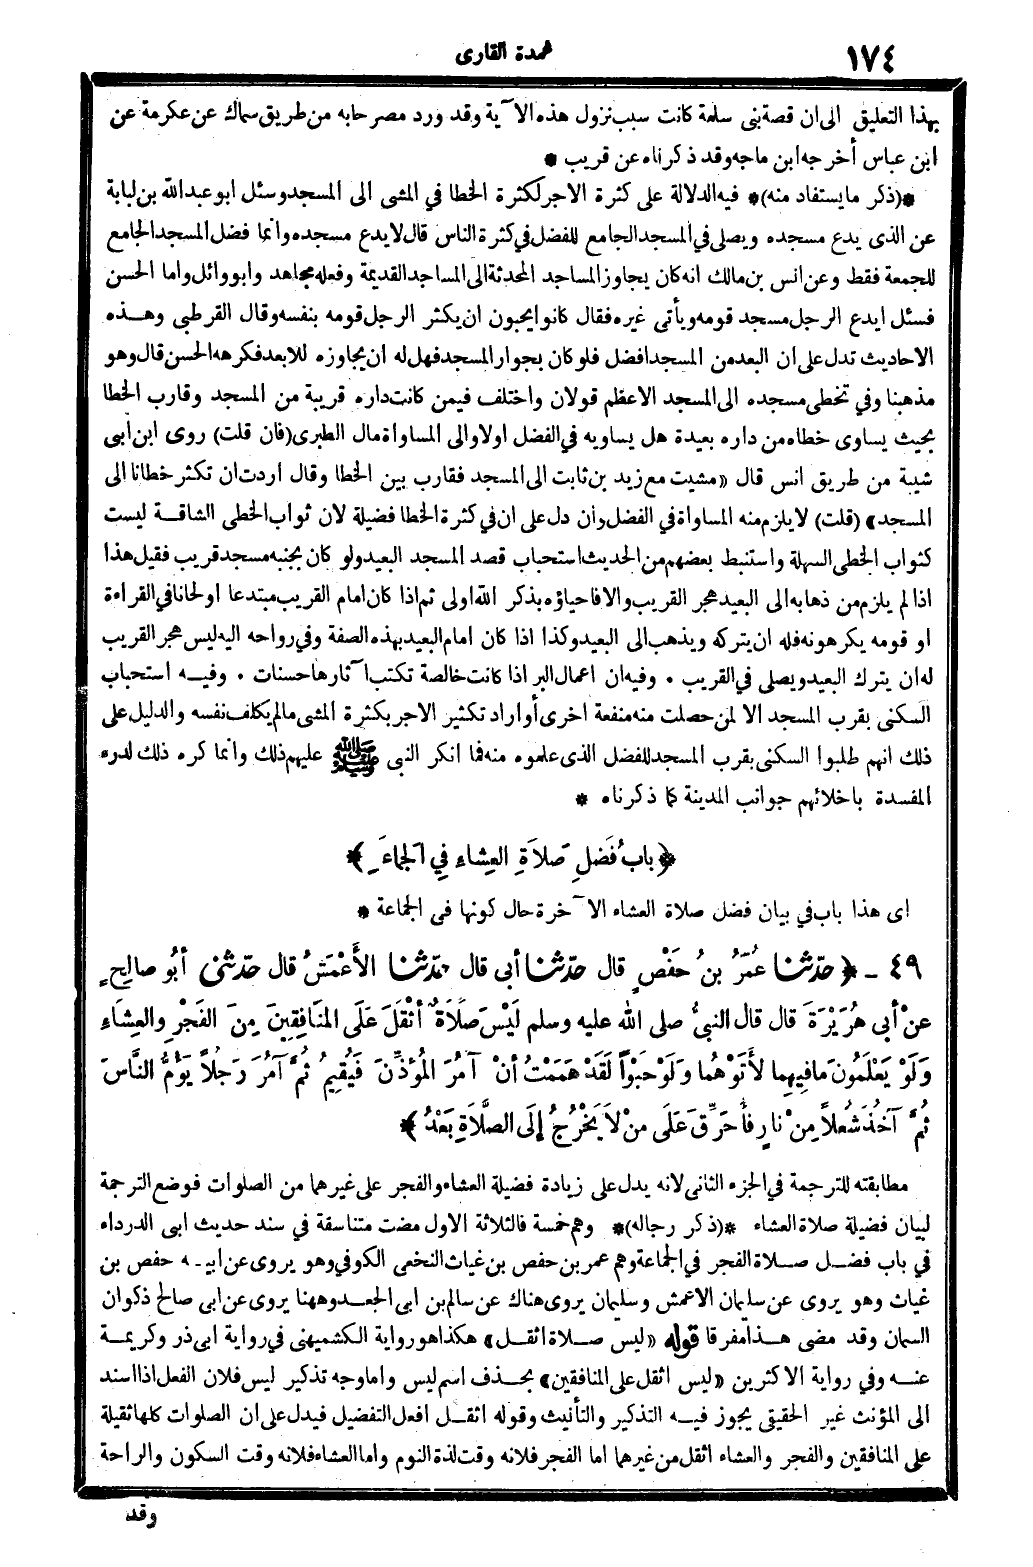 ١٧٤
عمدة القارى
بهذا التعليق الى ان قصة بنى سلمة كانت سبب نزول هذه الآية وقد ورد مصرحا به من طريق سماك عن عكرمة عن
ابن عباس أخرجه ابن ماجه وقد ذكرناه عن قريب *
*(ذكر ما يستفاد منه)* فيه الدلالة على كثرة الاجر لكثرة الخطا في المشى الى المسجد وسئل ابو عبدالله بن لبابة
عن الذى يدع مسجده ويصلى في المسجد الجامع للفضل في كثرة الناس قال لا يدع مسجده وانما فضل المسجد الجامع
للجمعة فقط وعن انس بن مالك انه كان يجاوز المساجد المحدثة الى المساجد القديمة وفعله مجاهد وابو وائل واما الحسن
فسئل ايدع الرجل مسجد قومه ويأتى غيره فقال كانوا يحبون ان يكثر الرجل قومه بنفسه وقال القرطبى وهـذه
الاحاديث تدل على أن البعد من المسجد افضل فلو كان بجوار المسجد فهل له ان يجاوزه للابعد فكرهه الحسن قال وهو
مذهبنا وفي تخطى مسجده الى المسجد الاعظم قولان واختلف فيمن كانت داره قريبة من المسجد وقارب الخطا
بحيث يساوى خطاه من داره بعيدة هل يساويه في الفضل اولا والى المساواة مال الطبرى (فان قلت) روى ابن أبى
شيبة من طريق انس قال «مشيت مع زيد بن ثابت الى المسجد فقارب بين الخطا وقال اردت ان تكثر خطانا الى
المسجد» (قلت) لا يلزم منه المساواة في الفضل وأن دل على ان في كثرة الخطا فضيلة لان ثواب الخطى الشاقة ليست
كثواب الخطى السهلة واستنبط بعضهم من الحديث استحباب قصد المسجد البعيد ولو كان بجنبه مسجد قريب فقيل هذا
اذا لم يلزم من ذهابه الى البعيد هجر القريب والا فاحياؤه بذكر الله اولى ثم اذا كان امام القريب مبتدعا او لحانا في القراءة
او قومه يكرهونه فله ان يتركه ويذهب الى البعيد وكذا اذا كان امام البعيد بهذه الصفة وفي رواحه اليه ليس هجر القريب
له ان يترك البعيد ويصلى في القريب . وفيه ان اعمال البر اذا كانت خالصة تكتب آثارها حسنات . وفيـه استحباب
السكنى بقرب المسجد الا لمن حصلت منه منفعة اخرى أو اراد تكثير الاجر بكثرة المشى مالم يكلف نفسه والدليل على
ذلك انهم طلبوا السكنى بقرب المسجد للفضل الذى علموه منه فما انكر النبى ﷺ عليهم ذلك وانما كره ذلك لدرء
المفسدة باخلائهم جوانب المدينة كما ذكرناه *
﴿ بابُ فَضْلِ صَلاَةِ العِشاءِ فِي الجَماعَةِ ﴾
اى هذا باب في بيان فضل صلاة العشاء الآخرة حال كونها فى الجماعة *
٤٩ - ﴿ حدثنا عُمَرُ بنُ حَفْصٍ قال حدثنا أبى قال حدثنا الأَعْمَشُ قال حدثنى أبُو صالحٍ
عنْ أبى هُرَيْرَةَ قال قال النبىُّ صلى الله عليه وسلم لَيْسَ صَلَاةٌ أثْقَلَ عَلَى المُنَافِقِينَ مِنَ الفَجْرِ والعِشاءِ
وَلَوْ يَعْلَمُونَ مافِيهِما لَأَتَوْهُما ولَوْ حَبْوًا لَقَدْ هَمَمْتُ أنْ آمُرَ المُؤَذِّنَ فَيُقِيمَ ثُمَّ آمُرَ رَجُلاً يَؤُمُّ النَّاسَ
ثُمَّ آخُذَ شُعَلاً مِنْ نارٍ فأُحَرِّقَ عَلَى مَنْ لاَ يَخْرُجُ إلَى الصَّلَاةِ بَعْدُ ﴾
مطابقته للترجمة في الجزء الثانى لانه يدل على زيادة فضيلة العشاء والفجر على غيرهما من الصلوات فوضع الترجمة
لبيان فضيلة صلاة العشاء *(ذكر رجاله)* وهم خمسة فالثلاثة الاول مضت متناسقة في سند حديث ابى الدرداء
في باب فضـل صـلاة الفجر في الجماعة وهم عمر بن حفص بن غياث النخعى الكوفي وهو يروى عن ابيـه حفص بن
غياث وهو يروى عن سليمان الاعمش وسليمان يروى هناك عن سالم بن ابى الجعد وههنا يروى عن ابى صالح ذكوان
السمان وقد مضى هـذا مفرقا قوله «ليس صـلاة اثقـل» هكذا هو رواية الكشميهنى في رواية ابى ذر وكريمـة
عنـه وفي رواية الاكثرين «ليس اثقل على المنافقين» بحـذف اسم ليس واما وجه تذكير ليس فلان الفعل اذا اسند
الى المؤنث غير الحقيقى يجوز فيـه التذكير والتأنيث وقوله اثقـل افعل التفضيل فيدل على ان الصلوات كلها ثقيلة
على المنافقين والفجر والعشاء اثقل من غيرهما اما الفجر فلانه وقت لذة النوم واما العشاء فلانه وقت السكون والراحة
وقد